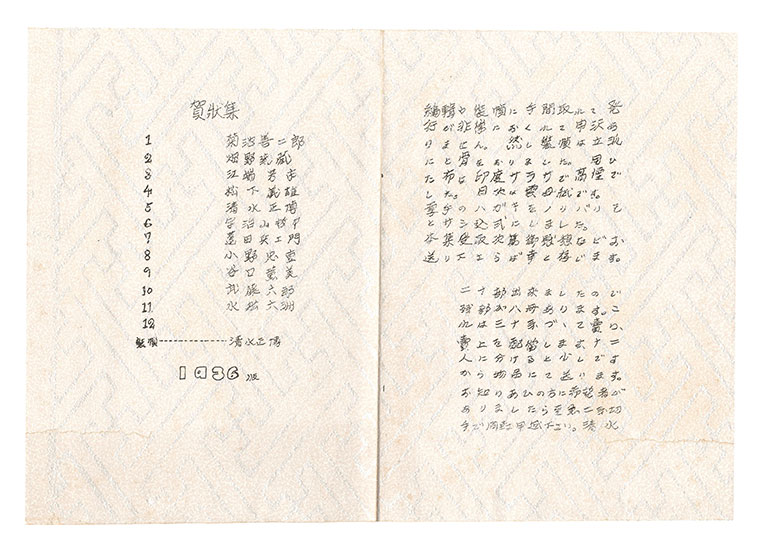 賀狀集
1 菊池善二郎
2 畑野
3 江端芳
4 松下義雄
5 清水正博
6 宇治山哲平
7 田兵エ門
8 小野忠重
9 谷口薫美
10 武藤六郎
11 水船六洲
12
装幀 清水正博
1936版
編輯と装幀に手間取れて発
行が非常におくれて申訳あ
りません。然し装幀は立派
にと骨をおりました。用ひ
た布は印度サラサで高價で
した。目次は雲母紙です。
厚手のハガキをノリバリと
サシ込式にしました。
本集受取次第御感想などお
送り下さらば幸と存じます。
二十部出来ましたので
残部が八冊あります。こ
れは三十づゝで賣り、
賣上を配當します。十二
人に分けると少しです
から物品にて送ります。
お知りあひの方に希望者が
ありましたら至急切
手ご同封申込下さい。清水